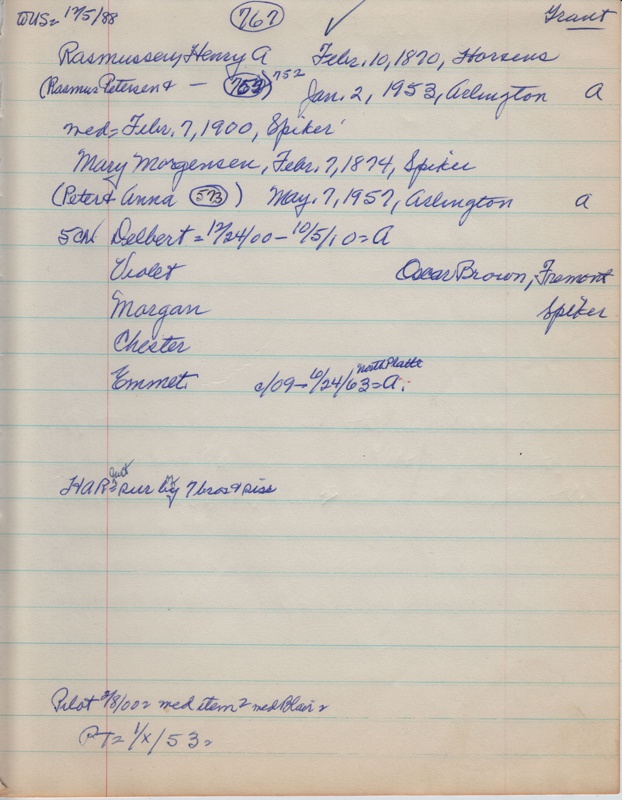 WUS= 12/5/88 767 Grant
Rasmussen, Henry A Febr. 10, 1870, Horsens
(Rasmus Petersen & — 753) 752 Jan. 2, 1953, Arlington A
med= Febr. 7, 1900, Spiker
Mary Morgensen, Febr. 7, 1874, Spiker
(Peter & Anna 573) May. 7, 1957, Arlington a
5 CN Delbert = 12/24/00 - 10/5/10 = A
Violet Oscar Brown, Fremont
Morgan Spiker
Chester
Emmet c/09 - 6/24/63 = A. North Platte
HAR= sur by 7 bros & siss
Pilot 2/8/00= med item= med Blair=
PT= 1/x/53=